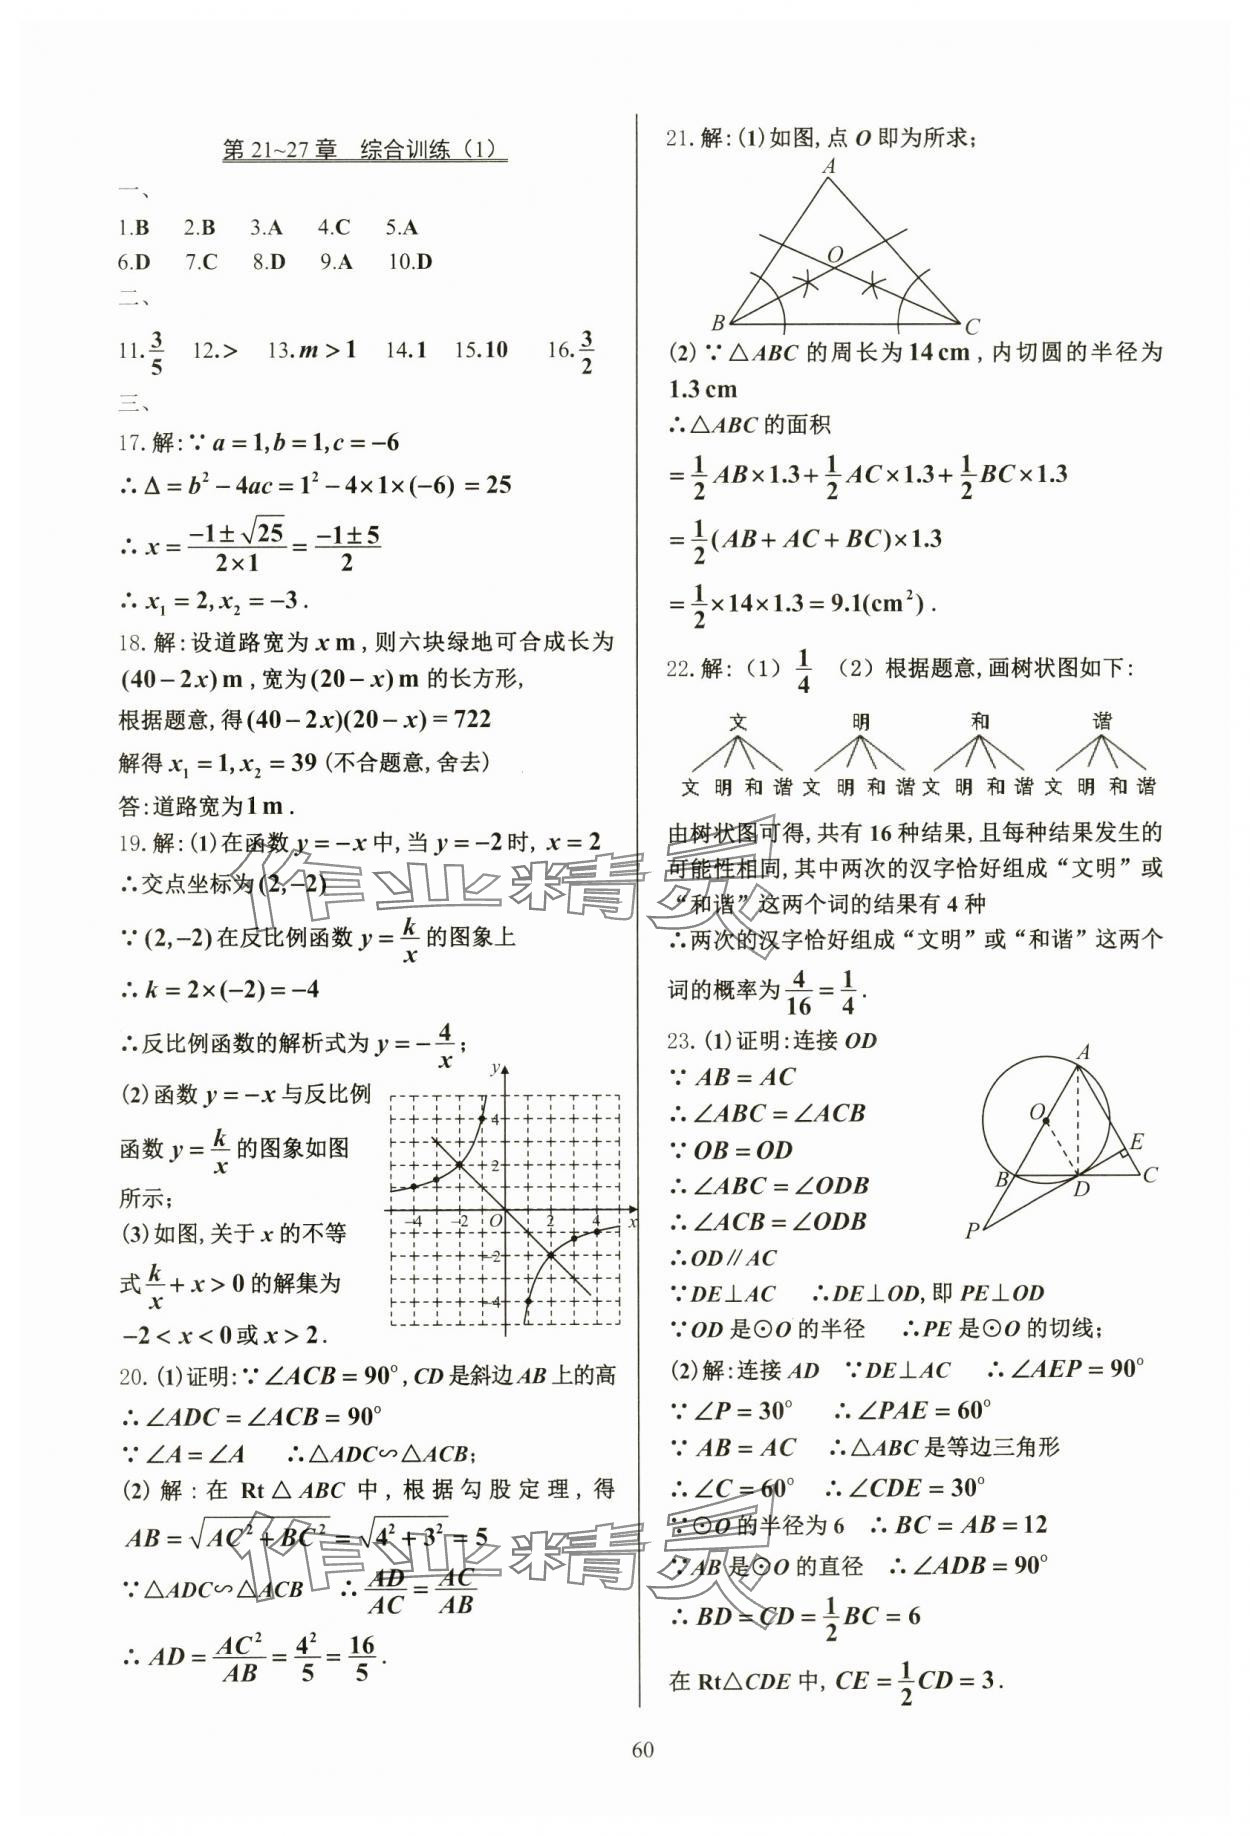 第21~27章 综合训练（1）
一、
1.B 2.B 3.A 4.C 5.A
6.D 7.C 8.D 9.A 10.D
二、
11.3/5 12.> 13.m>1 14.1 15.10 16.3/2
三、
17.解:∵a=1,b=1,c=−6
∴Δ=b²−4ac=1²−4×1×(−6)=25
∴x=(−1±√25)/(2×1)=(−1±5)/2
∴x₁=2,x₂=−3.
18.解:设道路宽为x m,则六块绿地可合成长为
(40−2x)m,宽为(20−x)m的长方形,
根据题意,得(40−2x)(20−x)=722
解得x₁=1,x₂=39(不合题意,舍去)
答:道路宽为1m.
19.解:(1)在函数y=−x中,当y=−2时,x=2
∴交点坐标为(2,−2)
∵(2,−2)在反比例函数y=k/x的图象上
∴k=2×(−2)=−4
∴反比例函数的解析式为y=−4/x;
(2)函数y=−x与反比例
函数y=k/x的图象如图
所示;
(3)如图,关于x的不等
式k/x+x>0的解集为
−2<x<0或x>2.
y
4
2
−4 −2 O 2 4 x
−2
−4
20.(1)证明:∵∠ACB=90°,CD是斜边AB上的高
∴∠ADC=∠ACB=90°
∵∠A=∠A ∴△ADC∽△ACB;
(2)解:在Rt△ABC中,根据勾股定理,得
AB=√(AC²+BC²)=√(4²+3²)=5
∵△ADC∽△ACB ∴AD/AC=AC/AB
∴AD=AC²/AB=4²/5=16/5.
21.解:(1)如图,点O即为所求;
A
O
B C
(2)∵△ABC的周长为14cm,内切圆的半径为
1.3cm
∴△ABC的面积
=1/2AB×1.3+1/2AC×1.3+1/2BC×1.3
=1/2(AB+AC+BC)×1.3
=1/2×14×1.3=9.1(cm²).
22.解:（1）1/4 （2）根据题意,画树状图如下:
文 明 和 谐
文 明 和 谐 文 明 和 谐 文 明 和 谐 文 明 和 谐
由树状图可得,共有16种结果,且每种结果发生的
可能性相同,其中两次的汉字恰好组成“文明”或
“和谐”这两个词的结果有4种
∴两次的汉字恰好组成“文明”或“和谐”这两个
词的概率为4/16=1/4.
23.(1)证明:连接OD
∵AB=AC
∴∠ABC=∠ACB
∵OB=OD
∴∠ABC=∠ODB
∴∠ACB=∠ODB
∴OD∥AC
A
O
E
B D C
P
∵DE⊥AC ∴DE⊥OD,即PE⊥OD
∵OD是⊙O的半径 ∴PE是⊙O的切线;
(2)解:连接AD ∵DE⊥AC ∴∠AEP=90°
∵∠P=30° ∴∠PAE=60°
∵AB=AC ∴△ABC是等边三角形
∴∠C=60° ∴∠CDE=30°
∵⊙O的半径为6 ∴BC=AB=12
∵AB是⊙O的直径 ∴∠ADB=90°
∴BD=CD=1/2BC=6
在Rt△CDE中,CE=1/2CD=3.
60
作业精灵
作业精灵